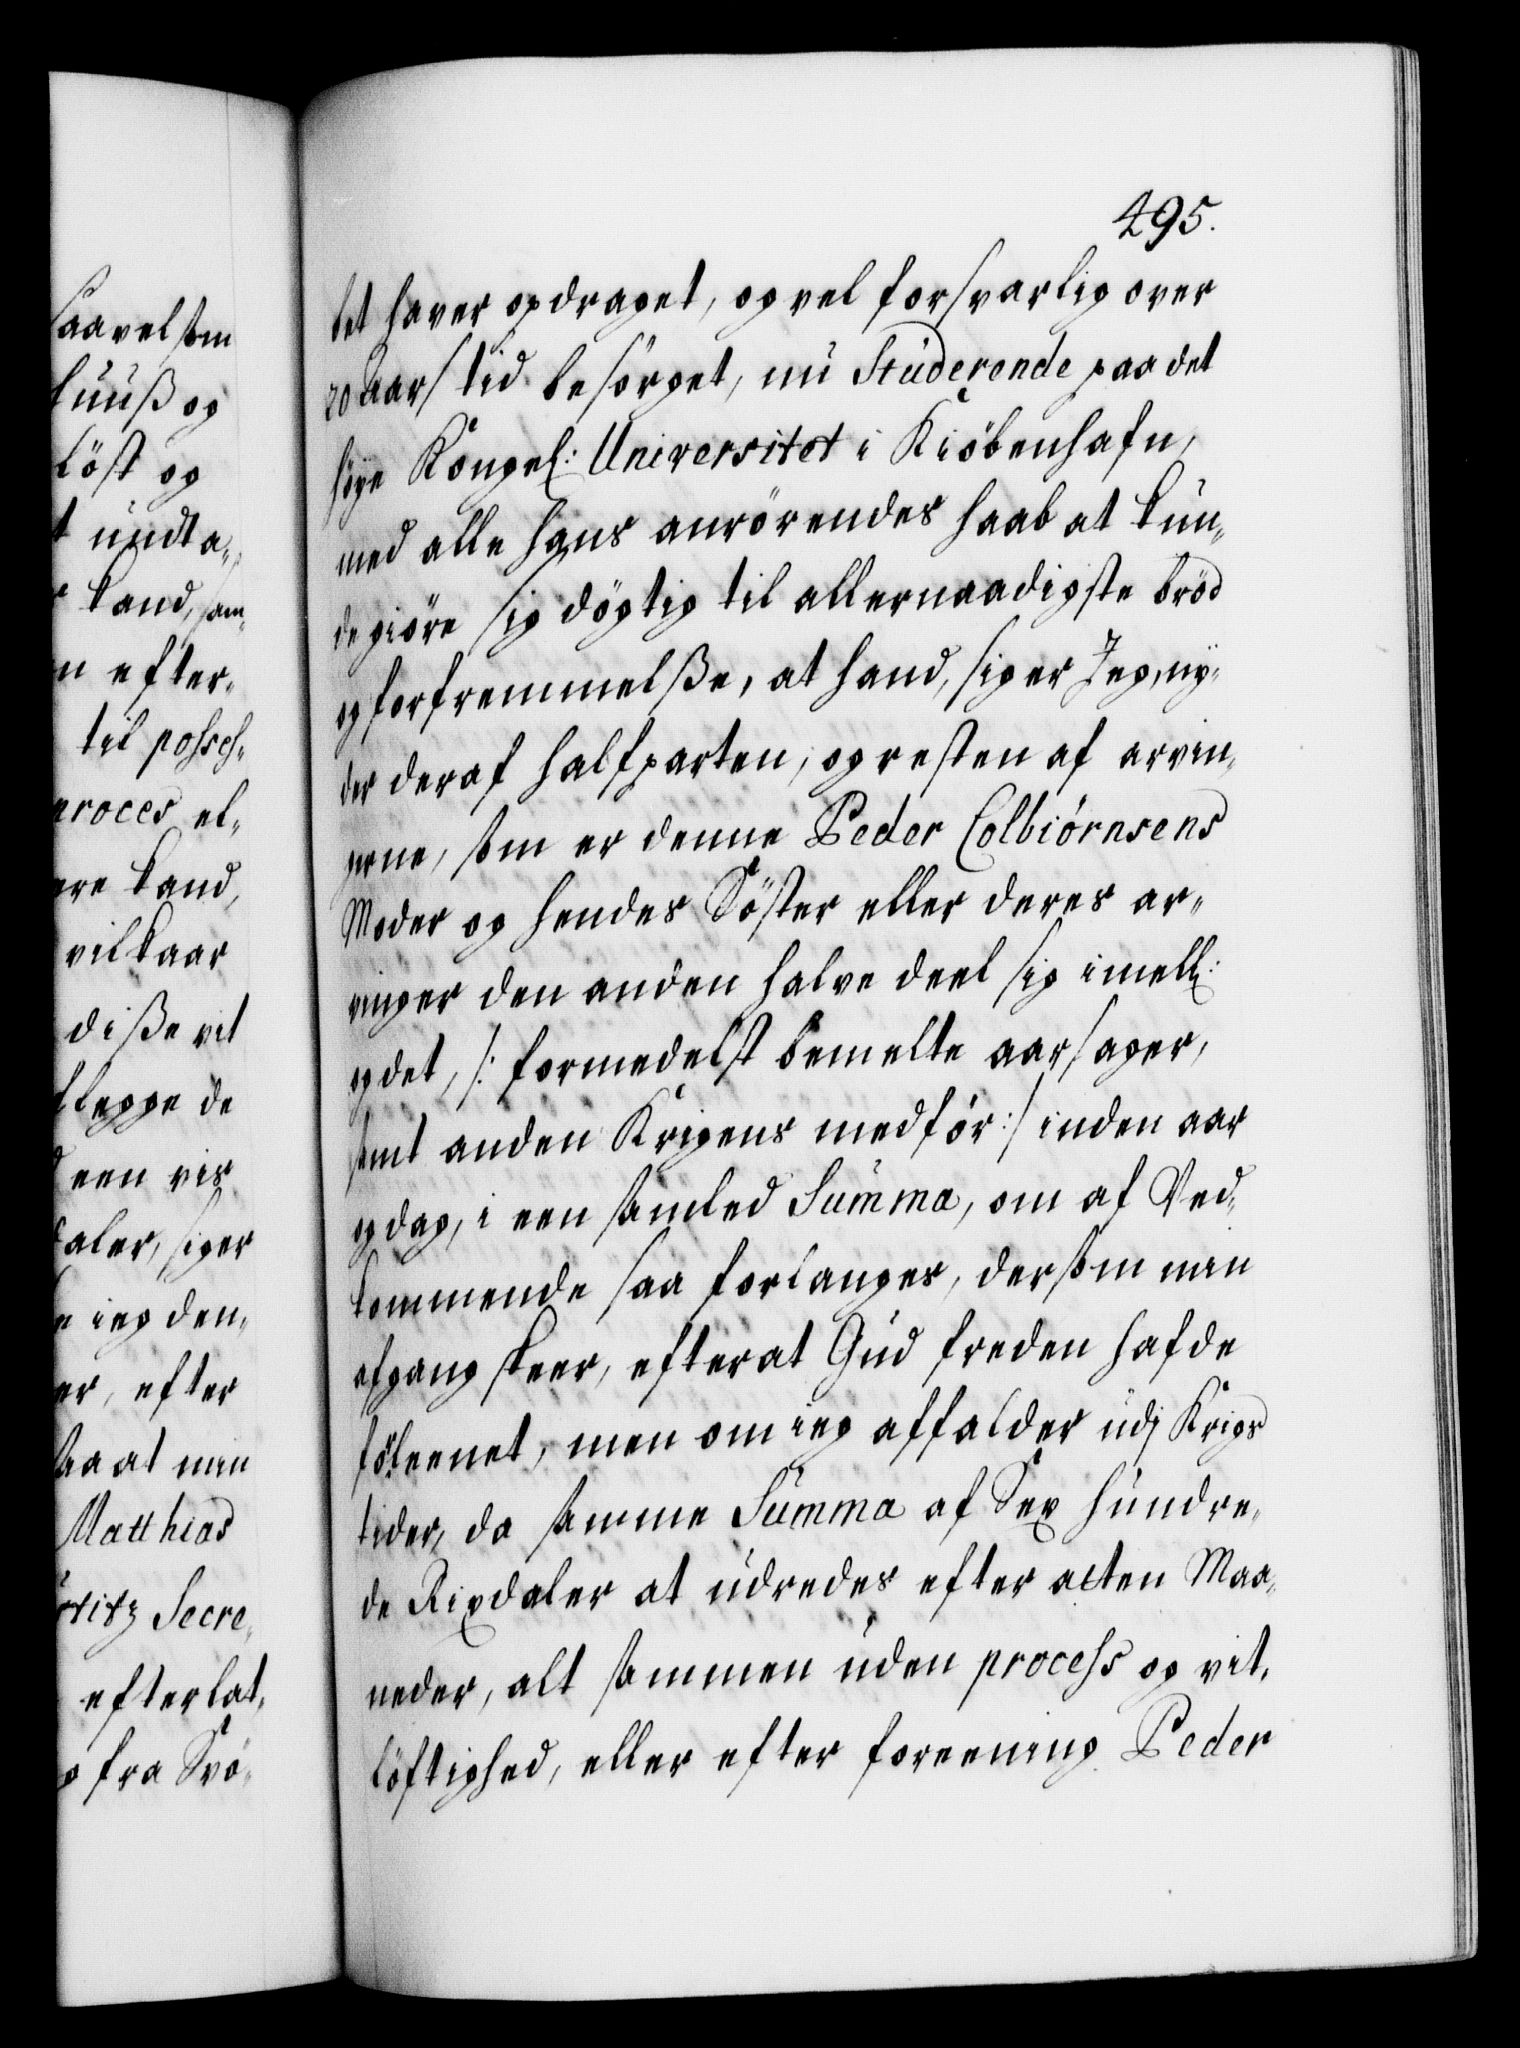 saavelsom
huuß og
löst og
t undta-
r kand, sam-
n efter-
til possess-
proces el-
ere kand,
vilkaar
diße vit
legge de
een vis
daler, siger
ieg den-
er, efter
saa at min
Matthias
Secre-
efterlat-
fra Svö-
495.
tet haver opdraget, og vel forsvarlig over
20 Aars tid besörget, nu Studerende paa det
höye Kongel: Universitet i Kiöbenhafn,
med alle hans anrörendes haab at kun-
de giöre sig dögtig til allernaadigste bröd
og forfremmelße, at hand, siger Jeg, ny-
der deraf halfparten, og resten af arvin-
gerne, som er denne Peder Colbiörnsens
Moder og hendes Söster eller deres ar-
vinger den anden halve deel sig imell:
og det, /: formedelst bemelte aarsager,
samt anden Krigens medför :/ inden aar
og dag, i een samled Summa, om af Ved-
kommende saa forlanges, dersom min
afgang skeer, efterat Gud freden hafde
forleenet, men om ieg affalder udj Krigs
tider, da samme Summa af Sex hundre-
de Rixdaler at udredes efter atten Maa-
neder, alt sammen uden process og vit-
löftighed, eller efter foreening Peder